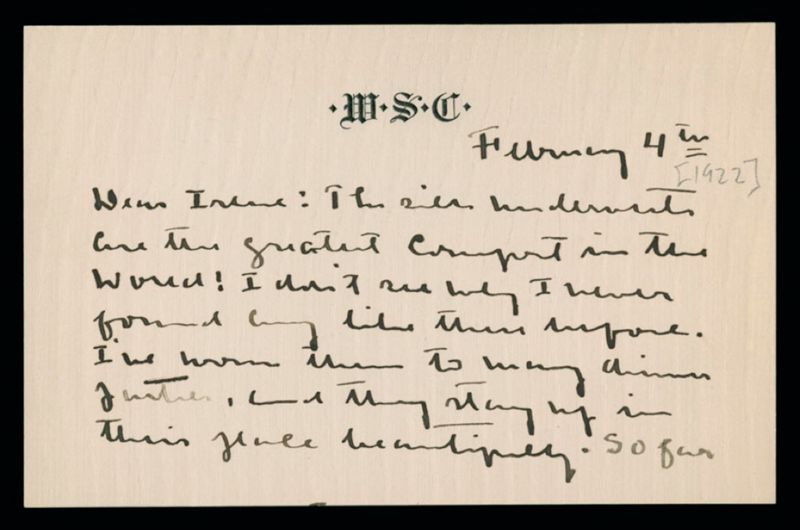 ·W·S·C·
February 4th
[1922]
Dear Irene: The silk undervests
are the greatest comfort in the
World! I don't see why I never
found any like them before.
I've worn them to many dinner
parties, and they stay up in
their place beautifully. So far